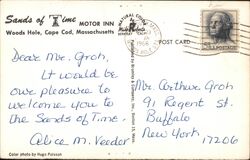 Sands of Time
MOTOR INN
Woods Hole, Cape Cod, Massachusetts
POST CARD
1968
Dear Mr. Groh,
It would be
our pleasure to
welcome you to
the Sands of Time.
Alice M. Veeder
Mr. Arthur Groh
91 Regent St.
Buffalo
New York
17206
Color photo by Hugo Poisson